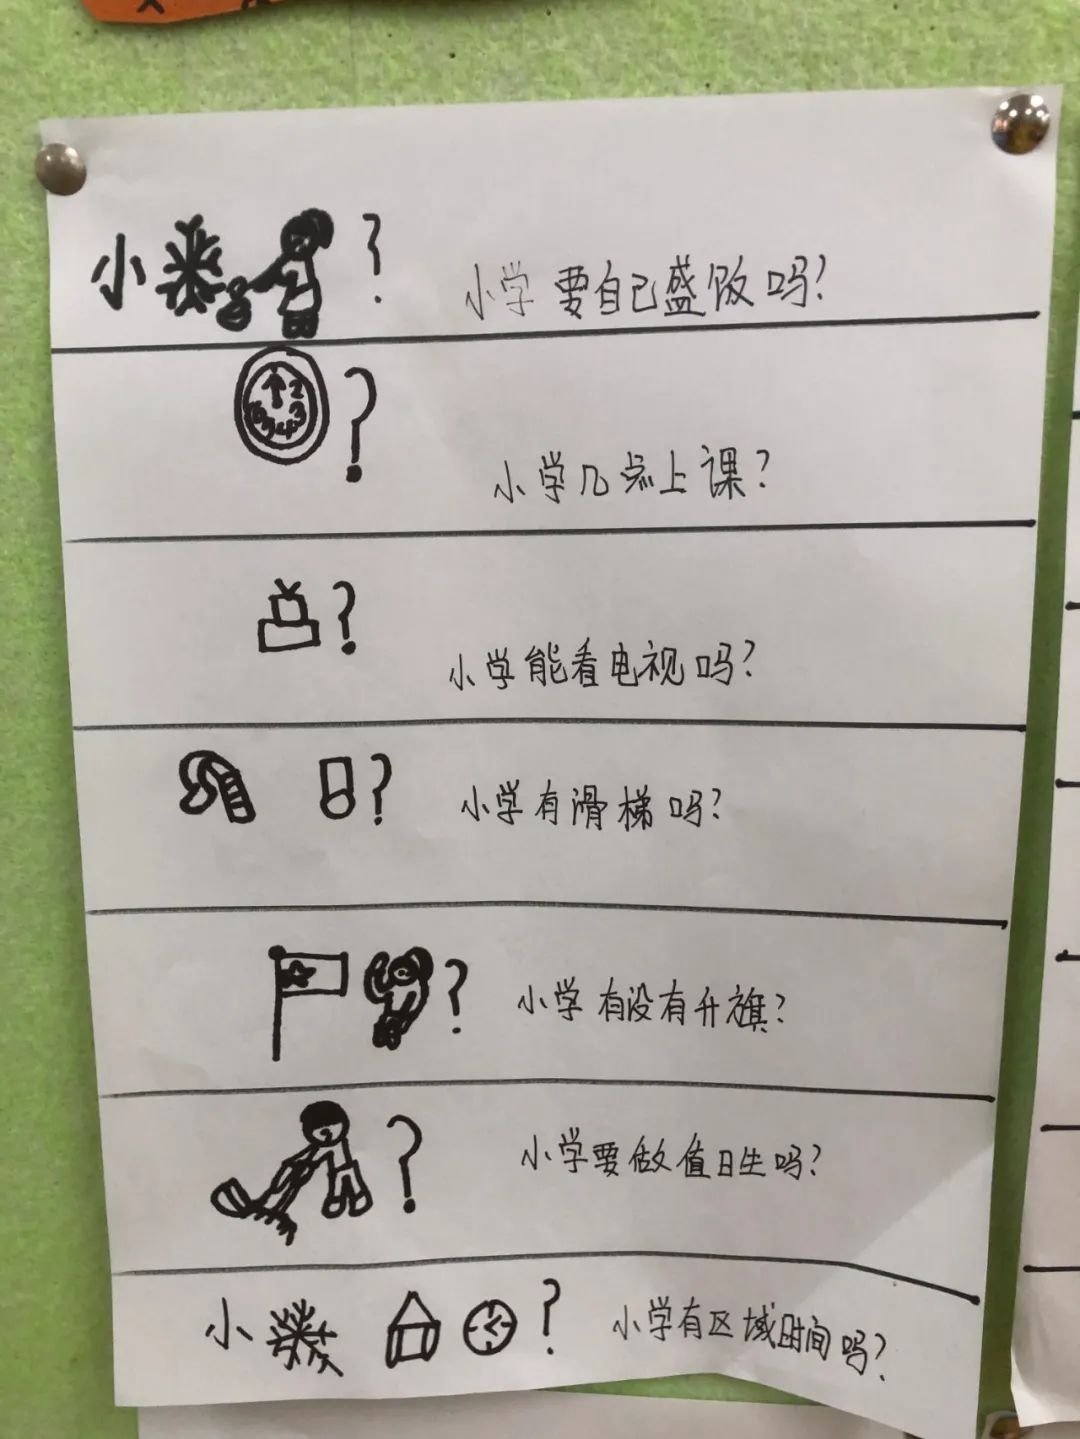 小 ? 小学要自己盛饭吗?
? 小学几点上课?
? 小学能看电视吗?
? 小学有滑梯吗?
? 小学有没有升旗?
? 小学要做值日生吗?
小 ? 小学有区域时间吗?